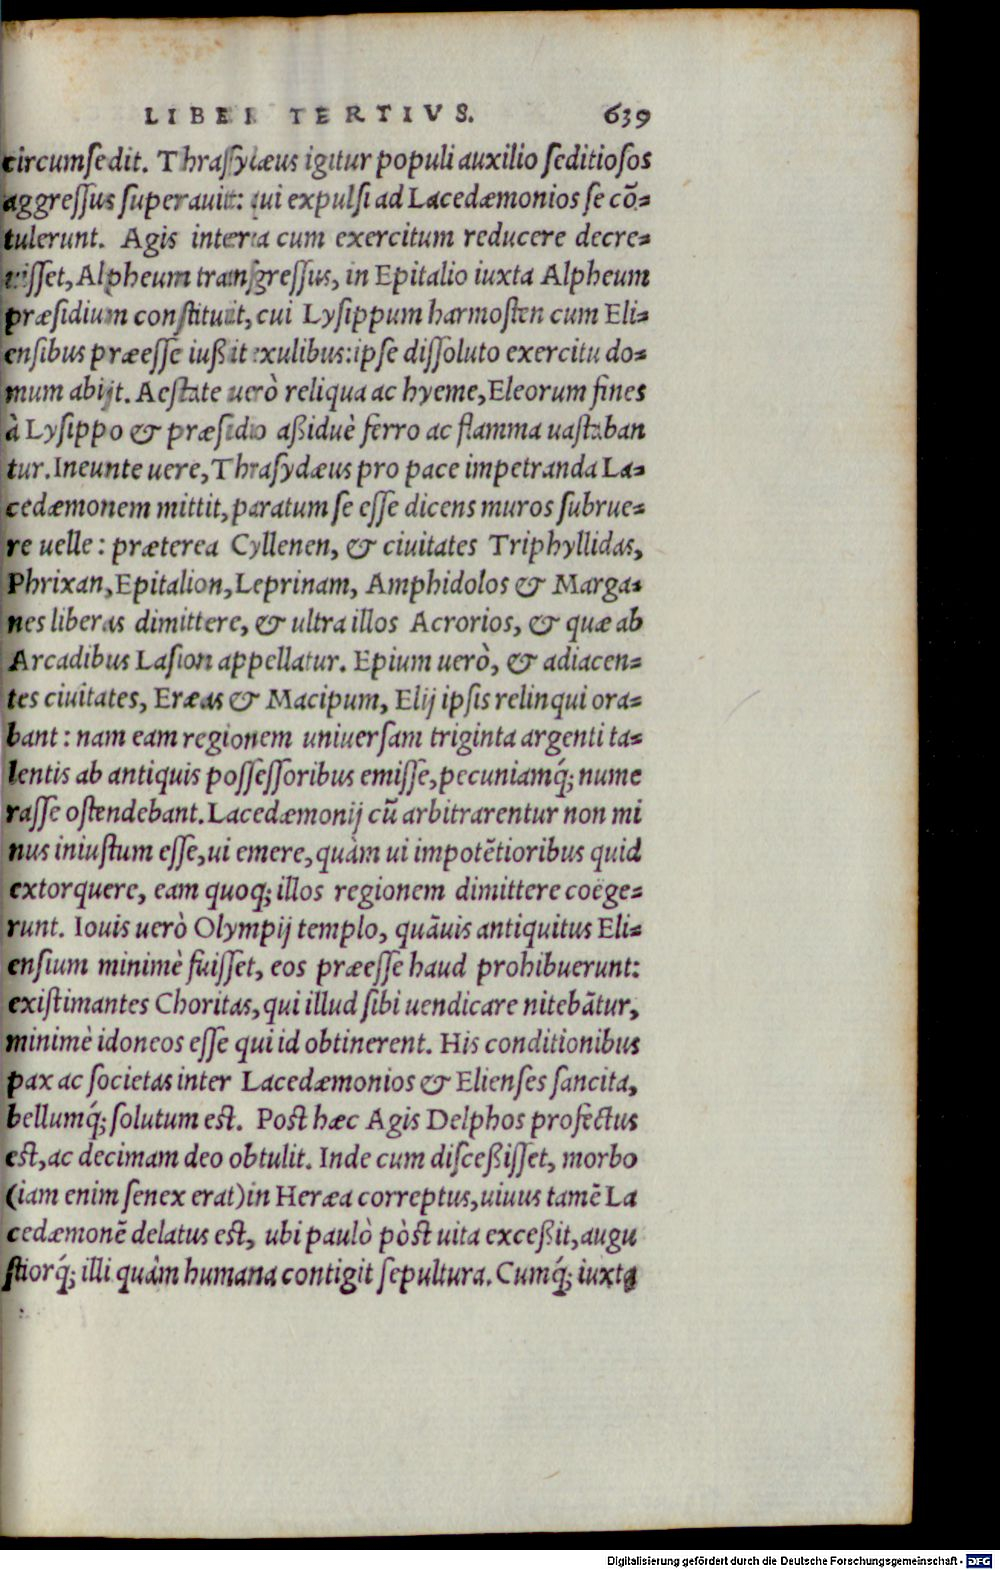 LIBER TERTIVS. 639
circumsedit. Thrasylæus igitur populi auxilio seditiosos
aggressus superauit: qui expulsi ad Lacedæmonios se cõ-
tulerunt. Agis interea cum exercitum reducere decre-
uisset, Alpheum transgressus, in Epitalio iuxta Alpheum
præsidium constituit, cui Lysippum harmosten cum Eli-
ensibus præesse iußit exulibus: ipse dissoluto exercitu do-
mum abijt. Aestate uerò reliqua ac hyeme, Eleorum fines
à Lysippo & præsidio aßiduè ferro ac flamma uastaban
tur. Ineunte uere, Thrasydæus pro pace impetranda La-
cedæmonem mittit, paratum se esse dicens muros subrue-
re uelle: præterea Cyllenen, & ciuitates Triphyllidas,
Phrixan, Epitalion, Leprinam, Amphidolos & Marga-
nes liberas dimittere, & ultra illos Acrorios, & quæ ab
Arcadibus Lasion appellatur. Epium uerò, & adiacen-
tes ciuitates, Eræas & Macipum, Elij ipsis relinqui ora-
bant: nam eam regionem uniuersam triginta argenti ta-
lentis ab antiquis possessoribus emisse, pecuniamq́; nume
rasse ostendebant. Lacedæmonij cũ arbitrarentur non mi
nus iniustum esse, ui emere, quàm ui impotẽtioribus quid
extorquere, eam quoq; illos regionem dimittere coëge-
runt. Iouis uerò Olympij templo, quãuis antiquitus Eli-
ensium minimè fuisset, eos præesse haud prohibuerunt:
existimantes Choritas, qui illud sibi uendicare nitebãtur,
minimè idoneos esse qui id obtinerent. His conditionibus
pax ac societas inter Lacedæmonios & Elienses sancita,
bellumq́; solutum est. Post hæc Agis Delphos profectus
est, ac decimam deo obtulit. Inde cum disceßisset, morbo
(iam enim senex erat) in Heræa correptus, uiuus tamẽ La
cedæmonẽ delatus est, ubi paulò pòst uita exceßit, augu
stiorq́; illi quàm humana contigit sepultura. Cumq́; iuxta
Digitalisierung gefördert durch die Deutsche Forschungsgemeinschaft - DFG